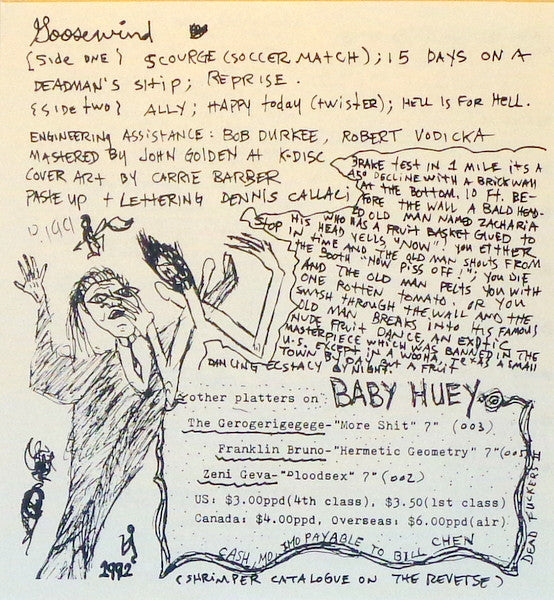 Goosewind
{Side one} Scourge (soccer match); 15 Days on a
Deadman's Ship; Reprise.
{Side two} Ally; Happy today (twister); Hell is for Hell.
Engineering Assistance: Bob Durkee, Robert Vodicka
Mastered by John Golden at K-Disc
Cover Art by Carrie Barber
Paste up + Lettering Dennis Callaci
Brake test in 1 mile its a
45° decline with a brick wall
at the bottom. 10 ft. be-
fore the wall a bald head-
ed old man named Zacharia
who has a fruit basket glued to
his head yells "now"! You either
Stop in time and the old man shouts from
the booth "Now piss off!"; you die
and the old man pelts you with
one rotten tomato. Or you
smash through the wall and the
old man breaks into his famous
nude fruit dance, an exotic
masterpiece which was banned in the
U.S. except in Texas a small
town by day but a fruit
dancing ecstacy by night
1991
other platters on BABY HUEY
The Gerogerigegege-"More Shit" 7" (003)
Franklin Bruno-"Hermetic Geometry" 7"
Zeni Geva-"Bloodsex" 7" (002)
US: $3.00ppd(4th class), $3.50(1st class)
Canada: $4.00ppd, Overseas: $6.00ppd(air)
PAYABLE TO BILL CHEN
DEAD FUCKERS II
1992
(SHRIMPER CATALOGUE ON THE REVERSE)